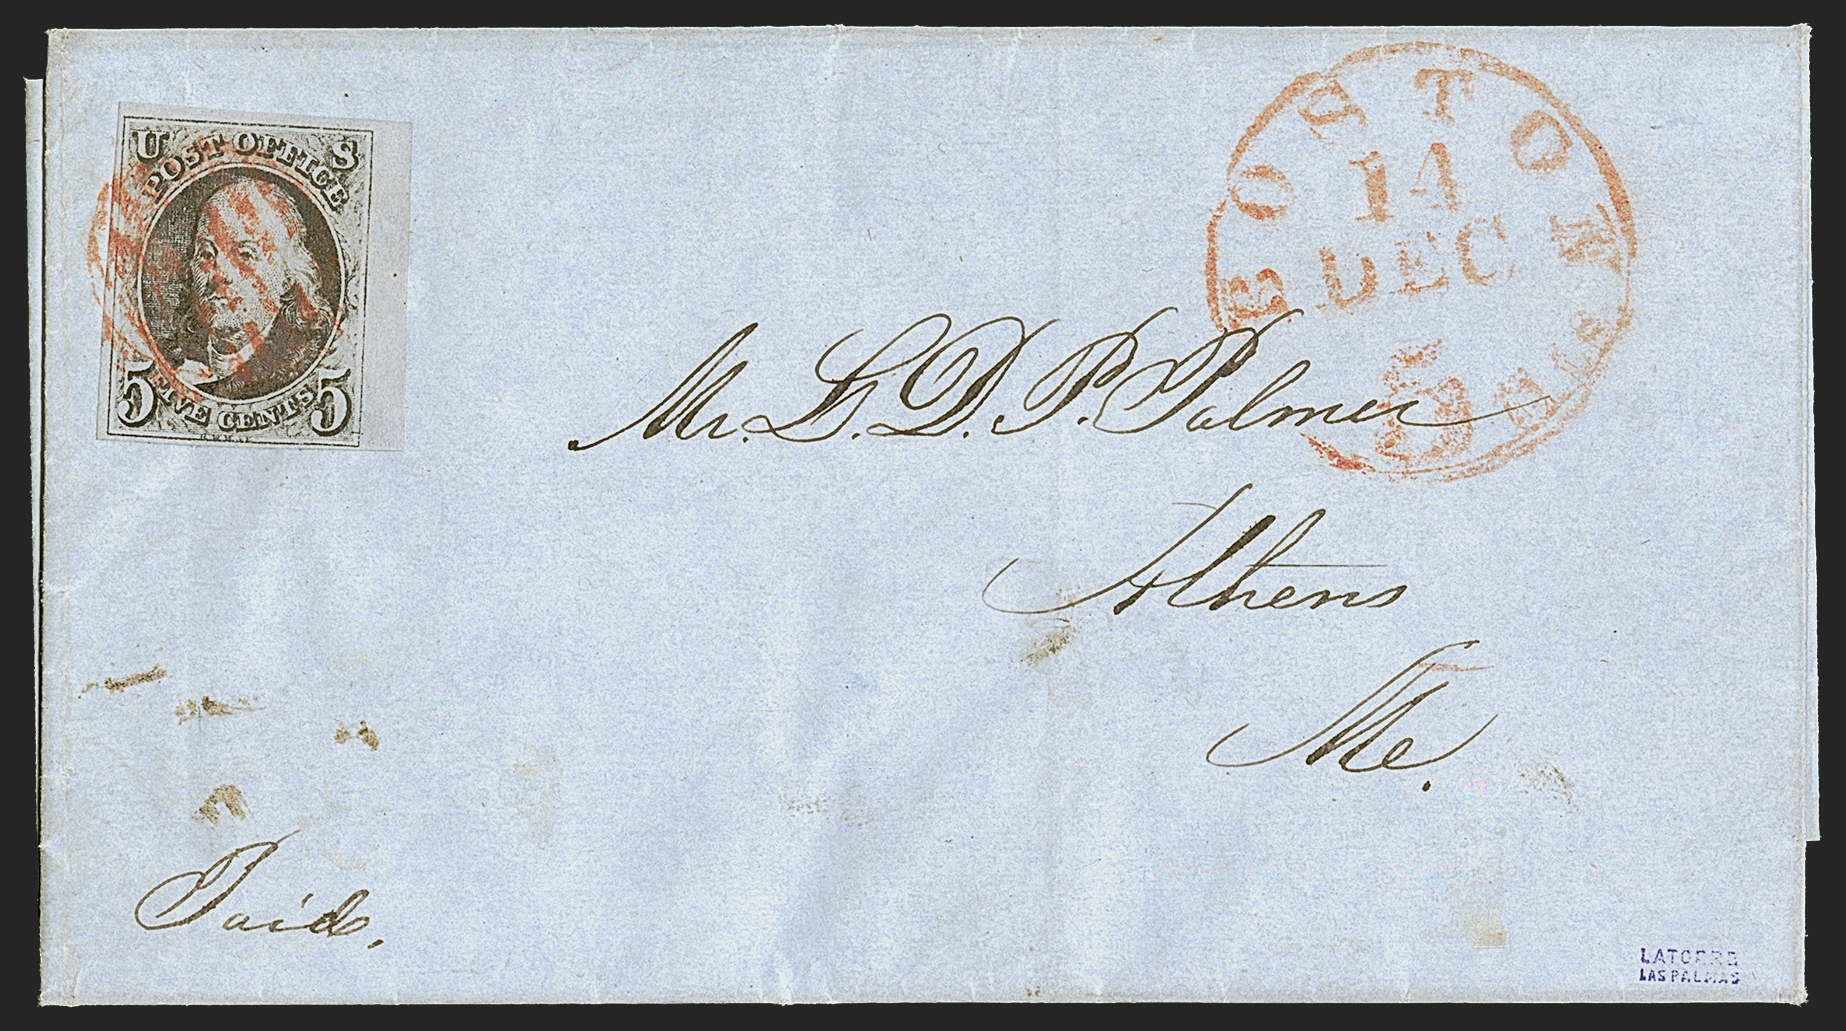 U S
POST OFFICE
5 FIVE CENTS 5
BOSTON
14
DEC
5 cts
Mr. L. D. P. Palmer
Athens
Me.
Paid.
LATORRE
LAS PALMAS